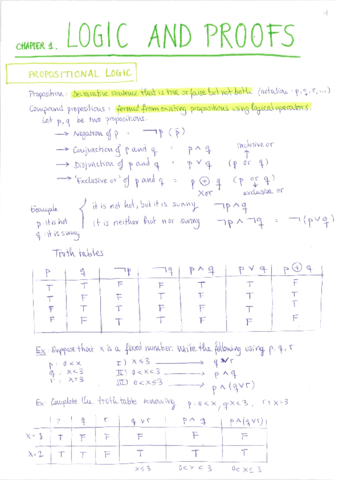 CHAPTER 1. LOGIC AND PROOFS
PROPOSITIONAL LOGIC
Proposition: Declarative sentence that is true or false but not both (notation: p, q, r, ...)
Compound propositions: formed from existing propositions using logical operators.
Let p, q be two propositions.
→ Negation of p = ¬p (p̄)
→ Conjunction of p and q = p ∧ q
inclusive or
→ Disjunction of p and q = p ∨ q (p or q)
→ 'Exclusive or' of p and q = p ⊕ q (p or q)
xor exclusive or
Example
p: it is hot
q: it is sunny
it is not hot, but it is sunny ¬p ∧ q
it is neither hot nor sunny ¬p ∧ ¬q = ¬(p ∨ q)
Truth tables
p q ¬p ¬q p ∧ q p ∨ q p ⊕ q
T T F F T T F
Ex: Suppose that x is a fixed number. Write the following using p, q, r
p: 0 < x I) x ≤ 3 → q ∨ r
q: x < 3 II) 0 < x < 3 → p ∧ q
r: x = 3 III) 0 < x ≤ 3 → p ∧ (q ∨ r)
Ex: Complete the truth table assuming p: 0 < x, q: x < 3, r: x = 3
p q r q ∨ r p ∧ q p ∧ (q ∨ r)
x = 2 T T F T T T
x ≤ 3 0 < x < 3 0 < x ≤ 3